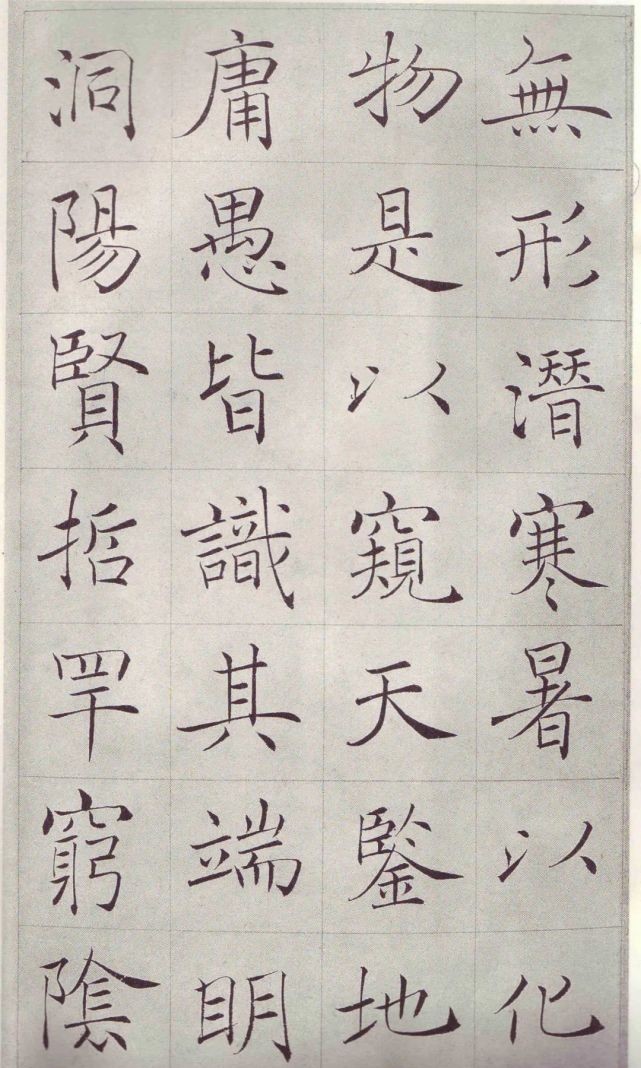 無形潛寒暑以化
物是以窺天鑒地
庸愚皆識其端明
洞陽賢哲罕窮陰